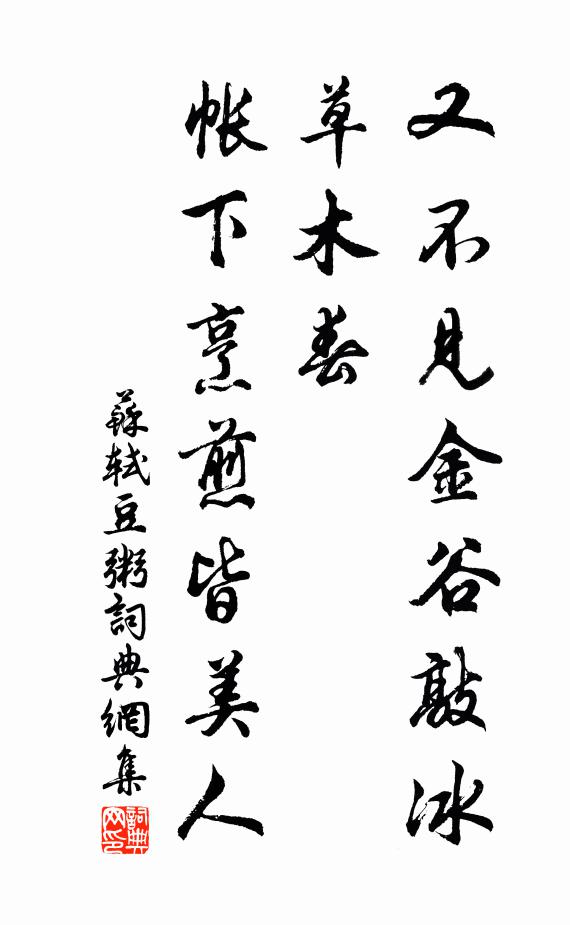 又不見金谷敲冰
草木春
帳下烹煎皆美人
蘇軾豆粥詞典網集
詞典网印